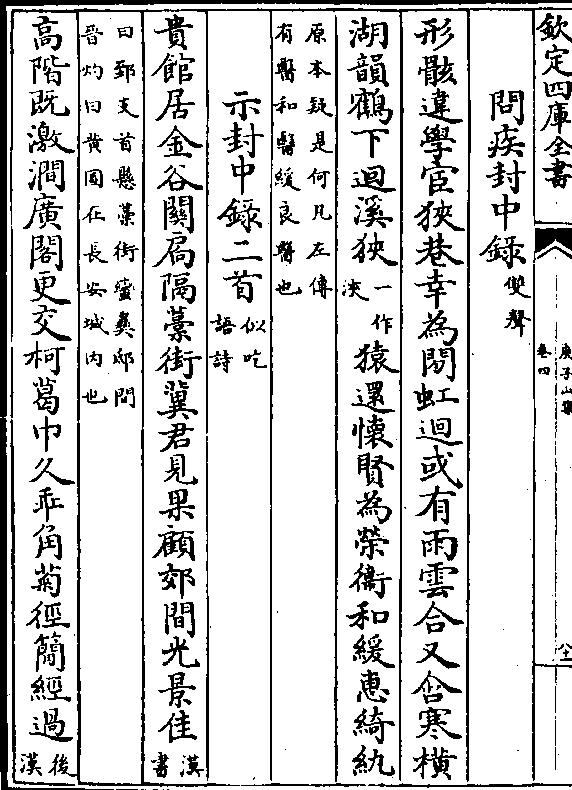 欽定四庫全書
庾子山集
卷四
問疾封中錄雙聲
形骸違學宦狹巷幸為閑虹迴或有雨雲合又含寒橫
湖韻鶴下迴溪狹一作浹猿還懷賢為榮衞和緩惠綺紈
原本疑是何凡左傳
有醫和醫緩良醫也
示封中錄二首似吃語詩
貴館居金谷關扄隔藁街冀君見果顧郊間光景佳漢書
曰郅支首懸藁街蠻彞邸間
晉灼曰黄圖在長安城内也
高階既激澗廣閣更交柯葛巾久乖角菊徑簡經過後漢